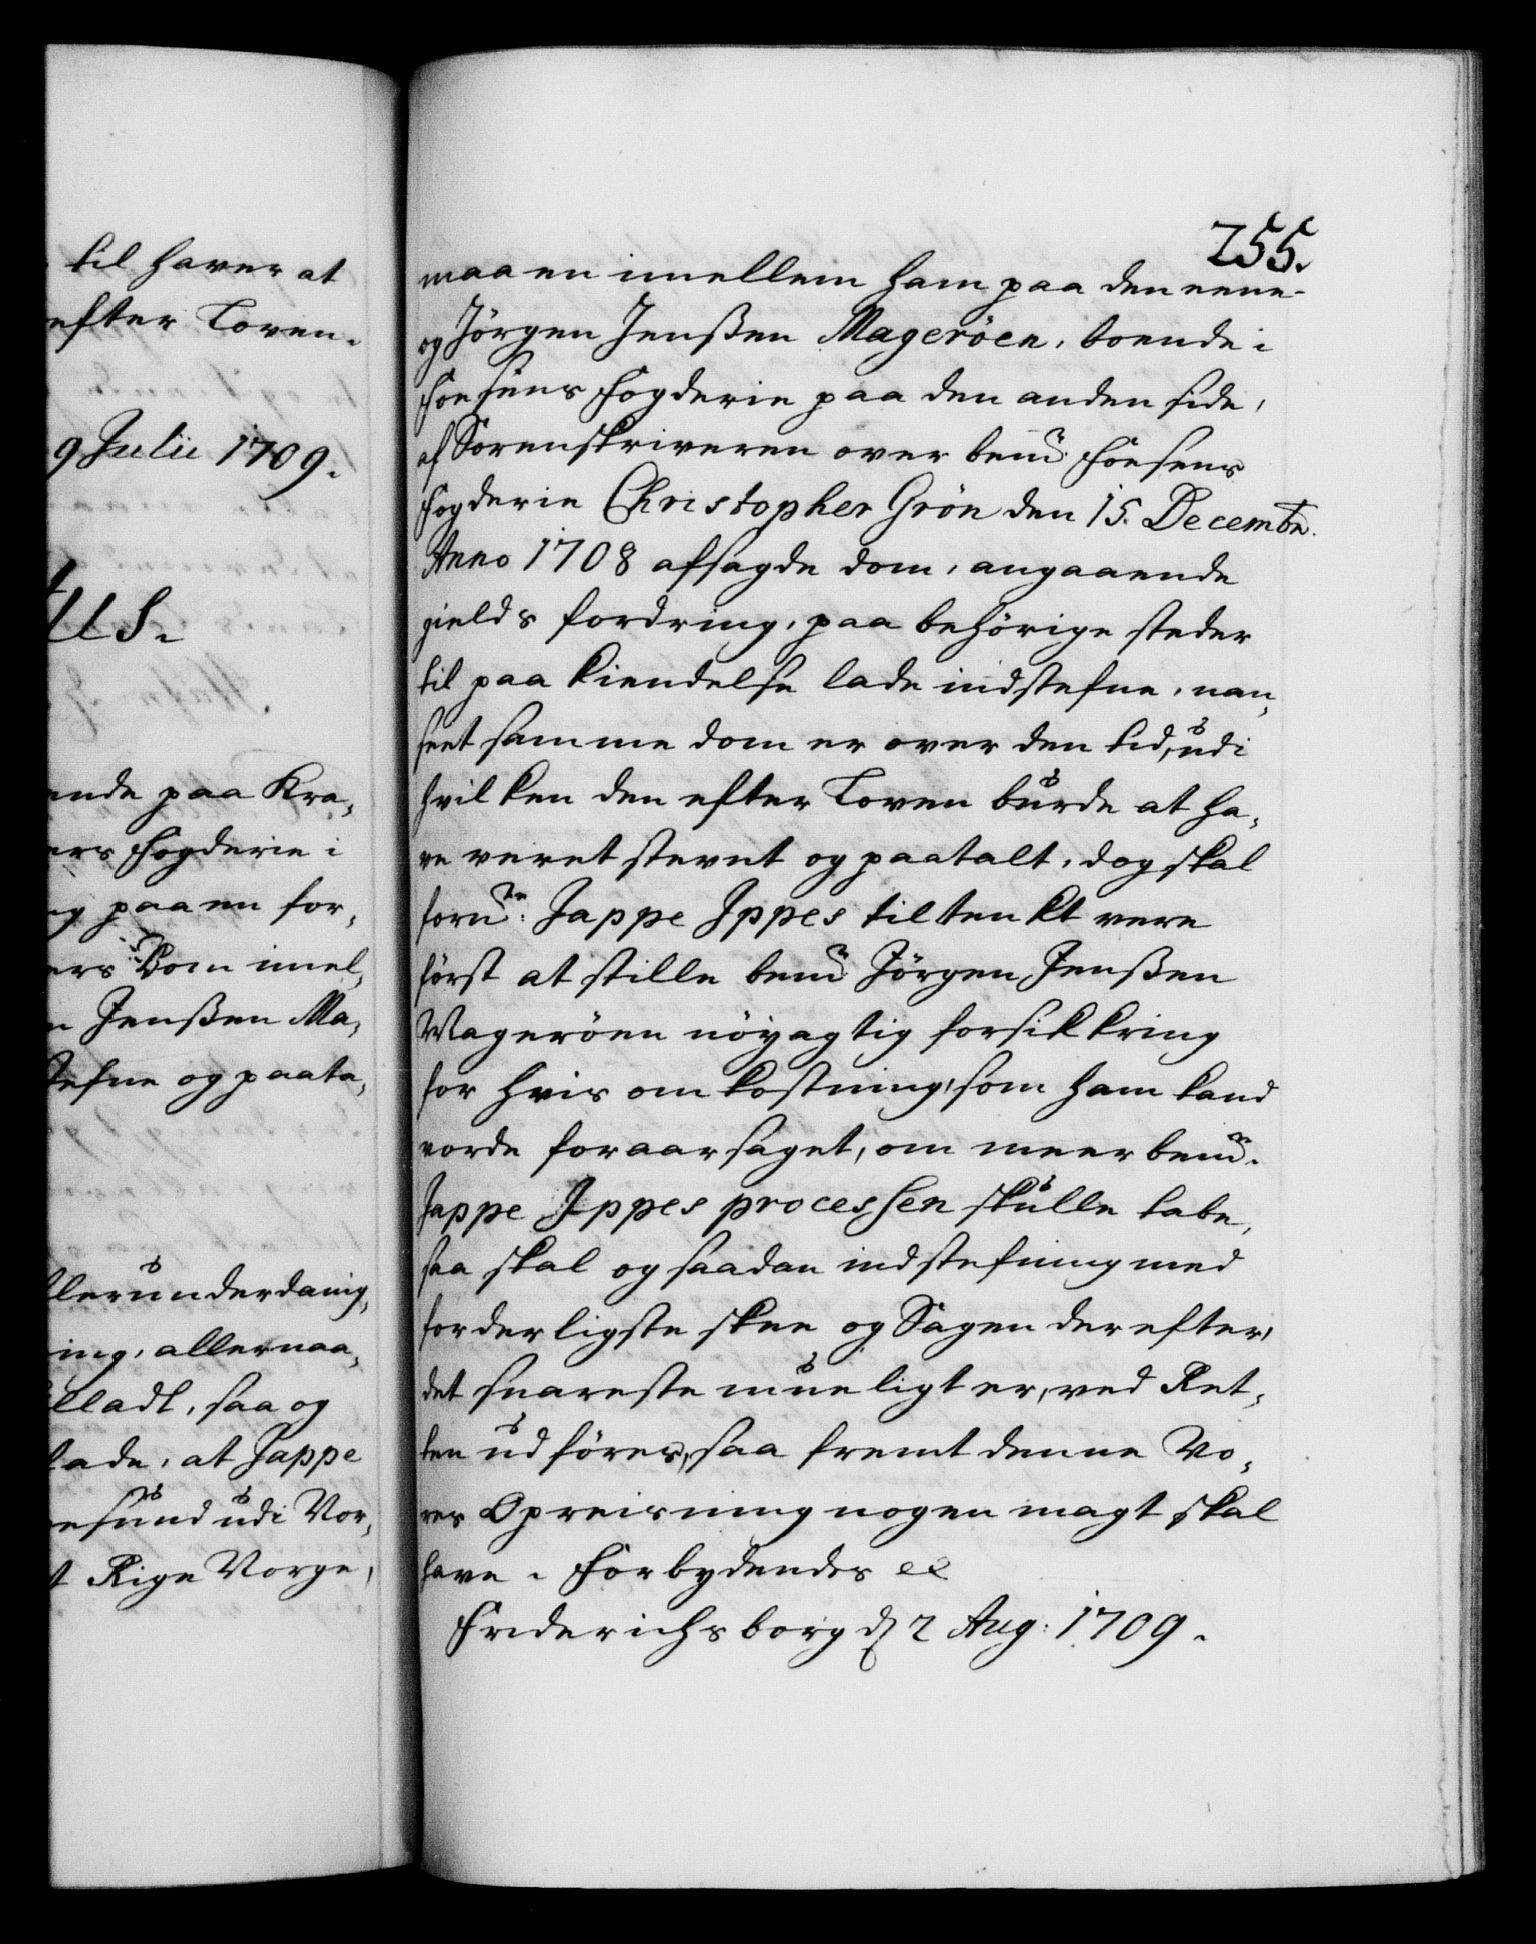 til haver at
efter Loven.
9 Julii 1709.
us.
ende paa Kra,
ers Fogderie i
ng paa en for,
ers Dom imel,
n Jenßen Ma,
stefne og paata,
llerunderdanig,
ing, allernaa,
lladt, saa og
lade, at Jappe
esund udi Vor,
t Rige Norge,
255.
maa en imellem ham paa den eene
og Jörgen Jenßen Mageröen, boende i
Foesens Fogderie paa den anden side,
af Sorenskriveren over bemte Foesens
Fogderie Christopher Grön den 15. Decembr.
Anno 1708 afsagde dom, angaaende
gields fordring, paa behörige steder
til paa kiendelse lade indstefne, uan,
seet samme dom er over den tid, udi
hvilken den efter Loven burde at ha,
ve veret stevnt og paatalt, dog skal
fornte: Jappe Ippes tiltenkt vere
först at stille bemte Jörgen Jenßen
Mageröen nöyagtig forsikkring
for hvis omkostning, som ham kand
vorde foraarsaget, om meerbemte.
Jappe Ippes processen skulle tabe,
saa skal og saadan indstefning med
forderligste skee og Sagen derefter,
det snareste mueligt er, ved Ret,
ten udföres, saa fremt denne Vo,
res Opreisning nogen magt skal
have. Forbydendes etc
Friderichsborg d 2 Aug: 1709.